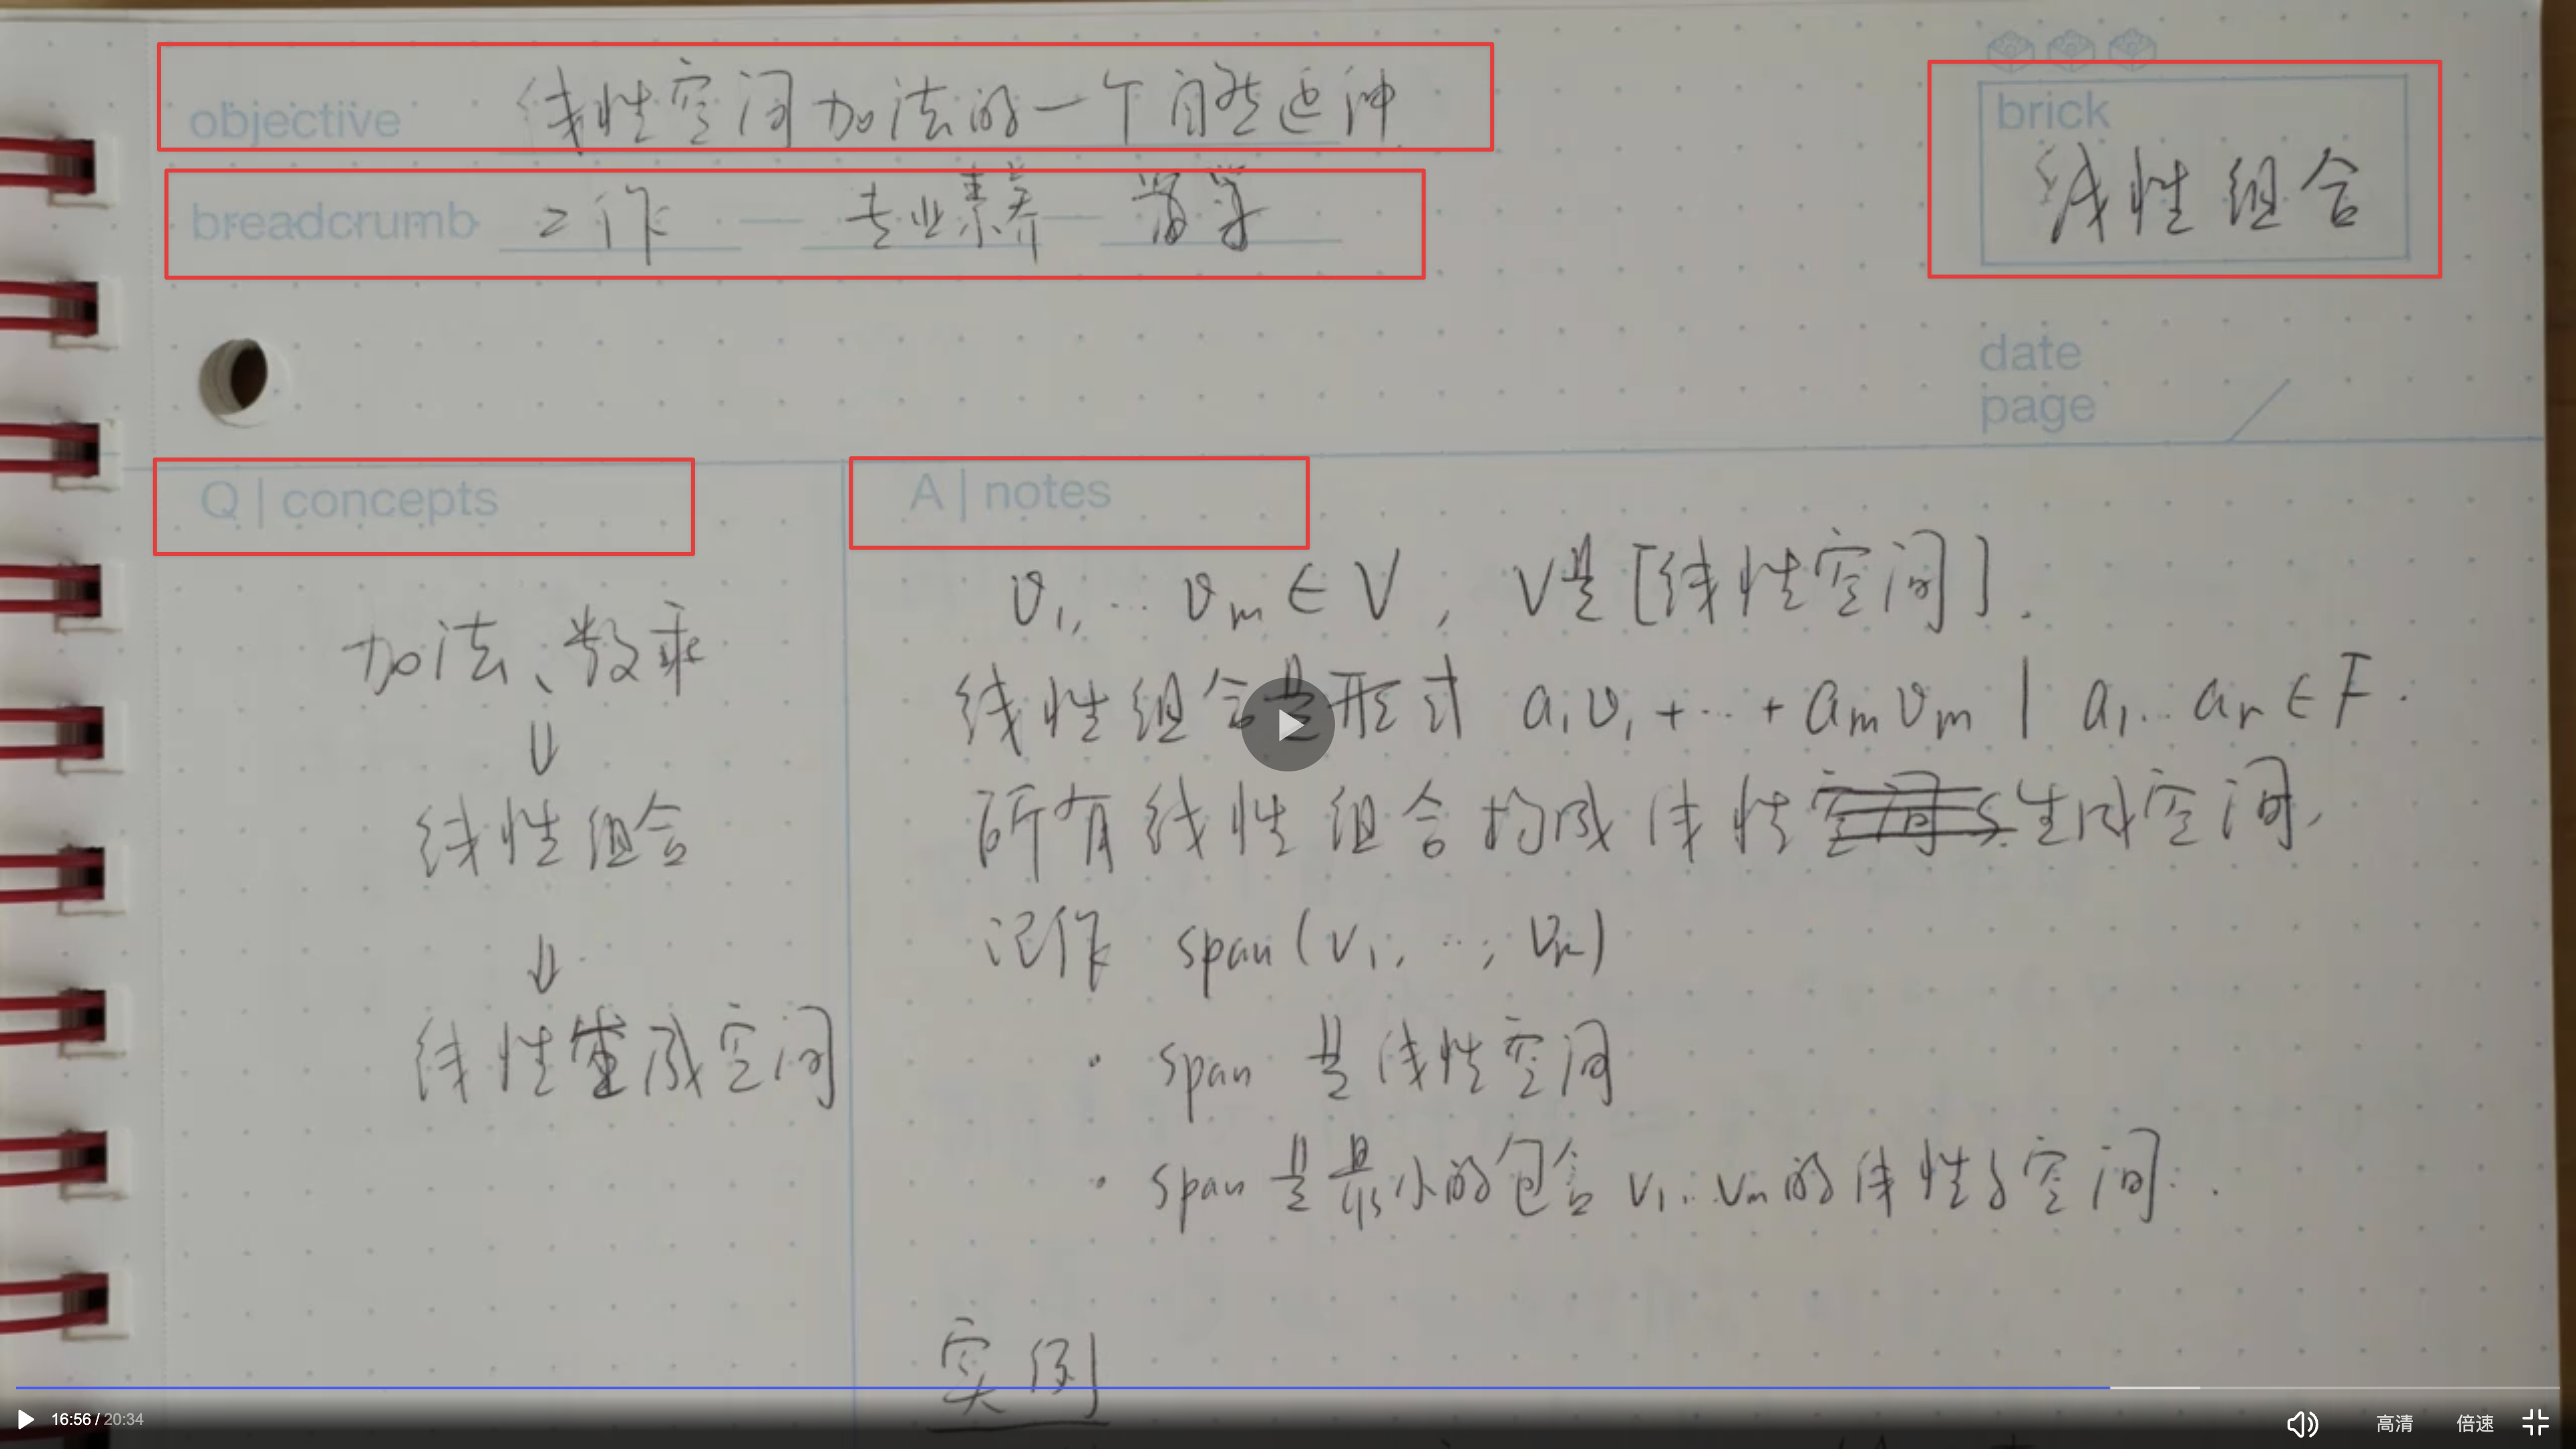 objective 线性空间加法的一个自然延伸
brick
线性组合
breadcrumb 工作 — 专业素养 — 数学
date
page /
Q | concepts
加法、数乘
⇓
线性组合
⇓
线性生成空间
A | notes
v₁, … vₘ ∈ V, V是[线性空间].
线性组合是形式 a₁v₁ + … + aₘvₘ | a₁ … aₙ ∈ F.
所有线性组合构成线性空间 生成空间,
记作 span(v₁, …, vₙ)
· span 是线性空间
· span 是最小的包含 v₁ … vₘ 的线性子空间.
实例
16:56 / 20:34
高清 倍速